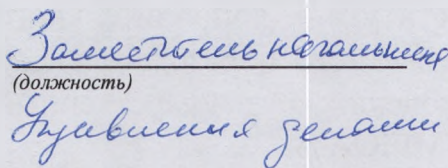 Заместитель начальника
(должность)
Управления делами